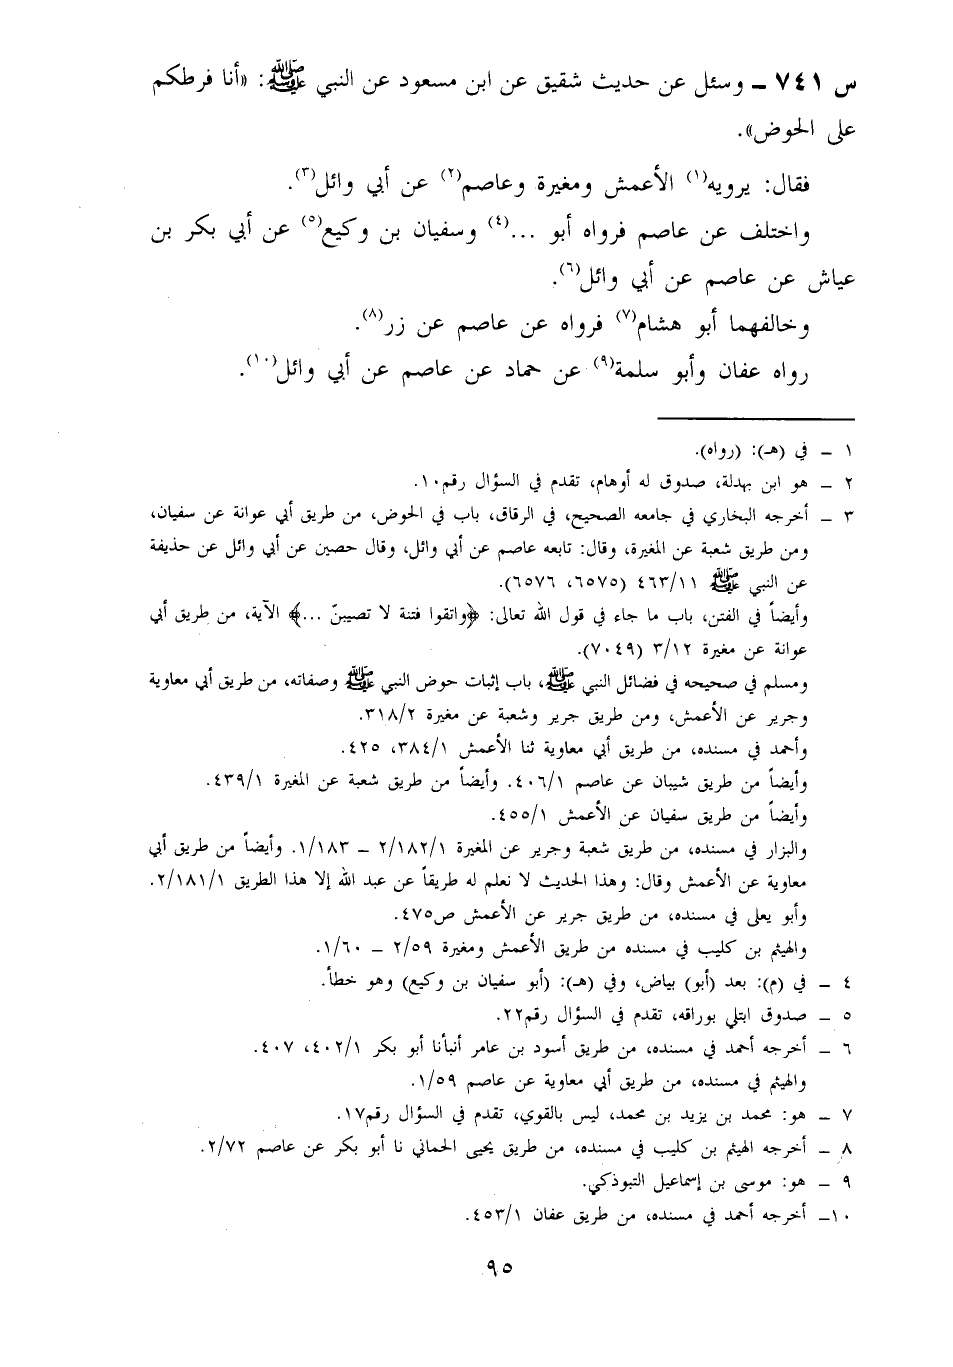 س ٧٤١ ـ وسئل عن حديث شقيق عن ابن مسعود عن النبي ﷺ: «أنا فرطكم
على الحوض».
فقال: يرويه(١) الأعمش ومغيرة وعاصم(٢) عن أبي وائل(٣).
واختلف عن عاصم فرواه أبو ...(٤) وسفيان بن وكيع(٥) عن أبي بكر بن
عياش عن عاصم عن أبي وائل(٦).
وخالفهما أبو هشام(٧) فرواه عن عاصم عن زر(٨).
رواه عفان وأبو سلمة(٩) عن حماد عن عاصم عن أبي وائل(١٠).
١ ـ في (هـ): (رواه).
٢ ـ هو ابن بهدلة، صدوق له أوهام، تقدم في السؤال رقم١٠.
٣ ـ أخرجه البخاري في جامعه الصحيح، في الرقاق، باب في الحوض، من طريق أبي عوانة عن سفيان،
ومن طريق شعبة عن المغيرة، وقال: تابعه عاصم عن أبي وائل، وقال حصين عن أبي وائل عن حذيفة
عن النبي ﷺ ٤٦٣/١١ (٦٥٧٥، ٦٥٧٦).
وأيضاً في الفتن، باب ما جاء في قول الله تعالى: ﴿واتقوا فتنة لا تصيبنّ ...﴾ الآية، من طريق أبي
عوانة عن مغيرة ٣/١٢ (٧٠٤٩).
ومسلم في صحيحه في فضائل النبي ﷺ، باب إثبات حوض النبي ﷺ وصفاته، من طريق أبي معاوية
وجرير عن الأعمش، ومن طريق جرير وشعبة عن مغيرة ٣١٨/٢.
وأحمد في مسنده، من طريق أبي معاوية ثنا الأعمش ٣٨٤/١، ٤٢٥.
وأيضاً من طريق شيبان عن عاصم ٤٠٦/١. وأيضاً من طريق شعبة عن المغيرة ٤٣٩/١.
وأيضاً من طريق سفيان عن الأعمش ٤٥٥/١.
والبزار في مسنده، من طريق شعبة وجرير عن المغيرة ٢/١٨٢/١ ـ ١/١٨٣. وأيضاً من طريق أبي
معاوية عن الأعمش وقال: وهذا الحديث لا نعلم له طريقاً عن عبد الله إلا هذا الطريق ٢/١٨١/١.
وأبو يعلى في مسنده، من طريق جرير عن الأعمش ص٤٧٥.
والهيثم بن كليب في مسنده من طريق الأعمش ومغيرة ٢/٥٩ ـ ١/٦٠.
٤ ـ في (م): بعد (أبو) بياض، وفي (هـ): (أبو سفيان بن وكيع) وهو خطأ.
٥ ـ صدوق ابتلي بوراقه، تقدم في السؤال رقم٢٢.
٦ ـ أخرجه أحمد في مسنده، من طريق أسود بن عامر أنبأنا أبو بكر ٤٠٢/١، ٤٠٧.
والهيثم في مسنده، من طريق أبي معاوية عن عاصم ١/٥٩.
٧ ـ هو: محمد بن يزيد بن محمد، ليس بالقوي، تقدم في السؤال رقم١٧.
٨ ـ أخرجه الهيثم بن كليب في مسنده، من طريق يحيى الحماني نا أبو بكر عن عاصم ٢/٧٢.
٩ ـ هو: موسى بن إسماعيل التبوذكي.
١٠ـ أخرجه أحمد في مسنده، من طريق عفان ٤٥٣/١.
٩٥